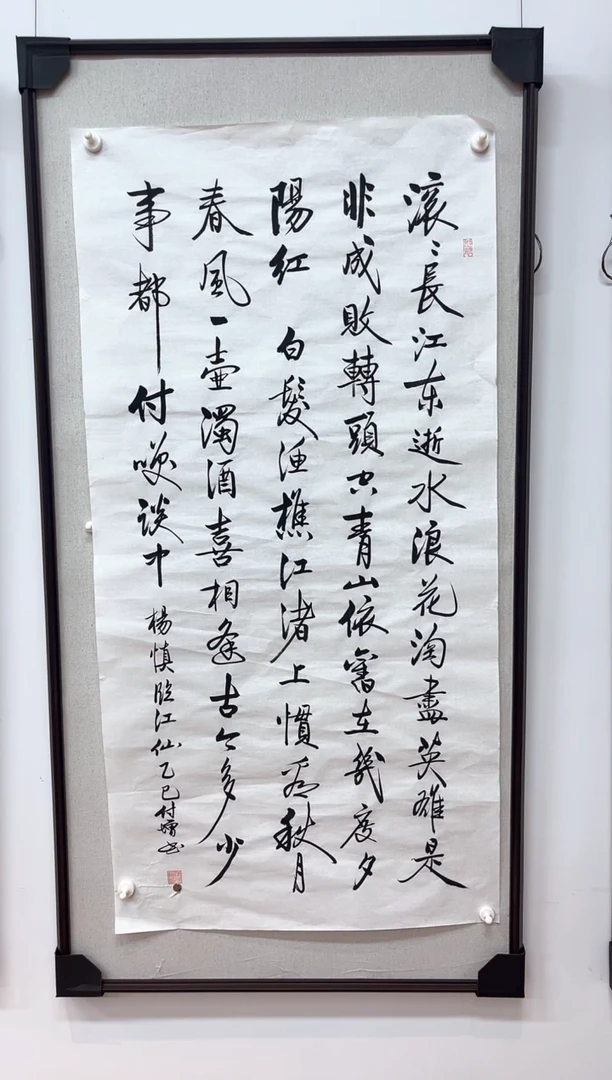 滚〻長江东逝水浪花淘盡英雄是
非成败轉頭空青山依舊在幾度夕
陽红 白髮渔樵江渚上慣看秋月
春風一壶濁酒喜相逢古今多少
事都付笑谈中
楊慎临江仙乙巳付